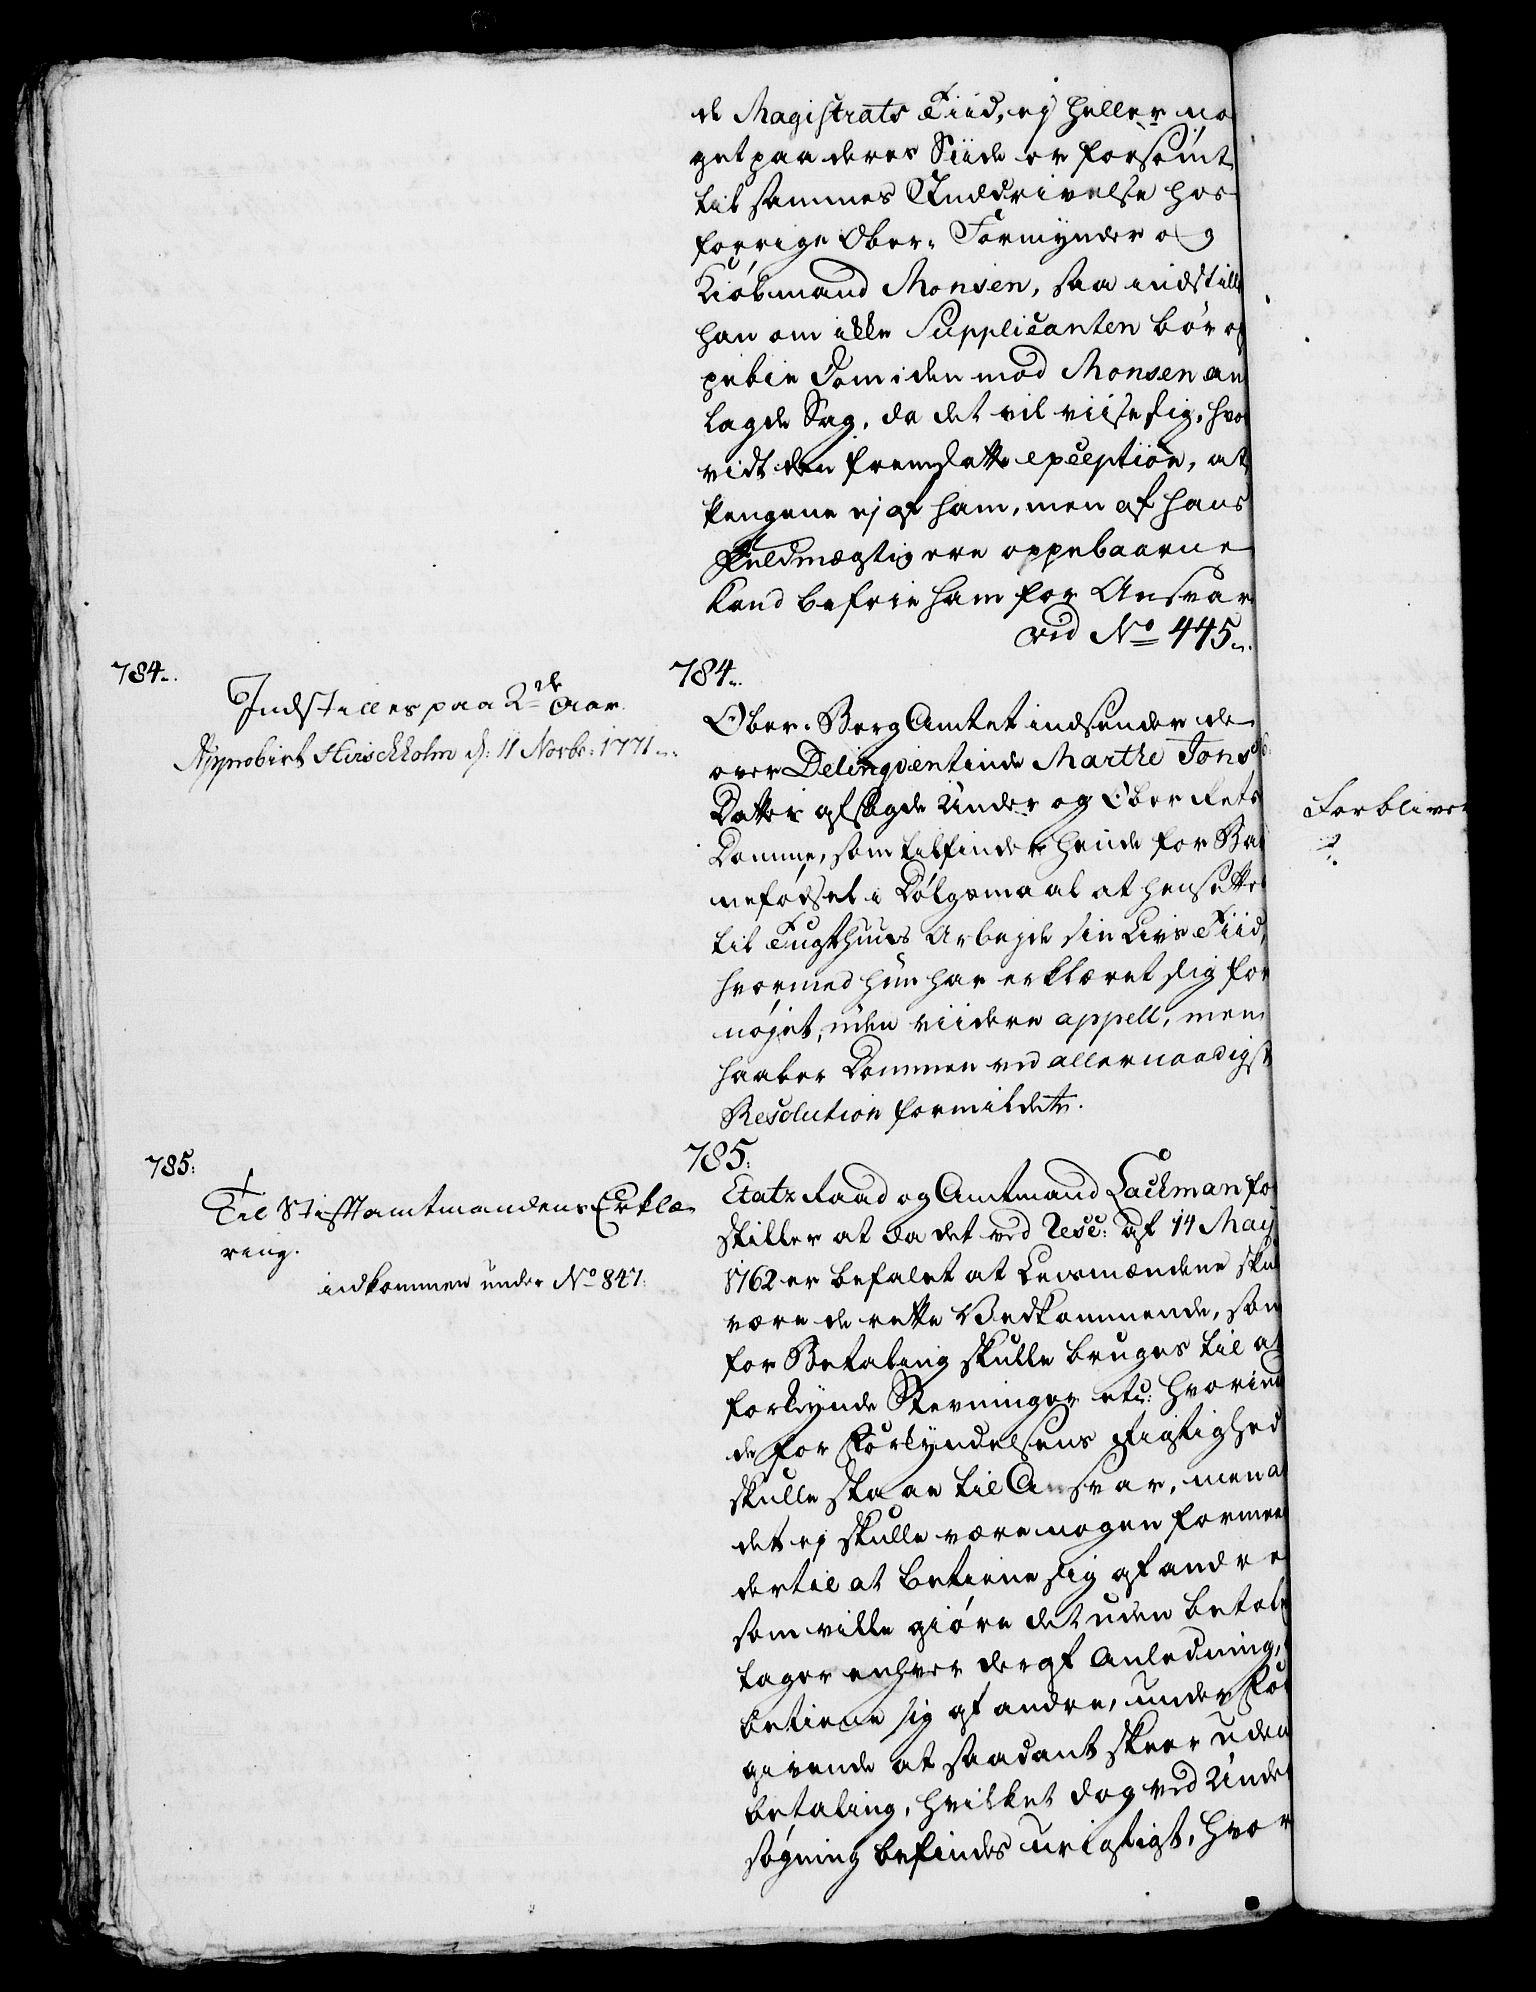 de Magistrats Tiid, ej heller no
get paa deres Siide er forsømt
til sammes Inddrivelse hos
forrige Ober-Formynder og
Kiøbmand Monsen, saa indstill
han om ikke Supplicanten bør op
pebie Dom i den mod Monsen an
lagde Sag, da det vil viise sig, hvor
vidt den fremsatte exception, at
Pengene ej af ham, men af hans
Fuldmægtig ere oppebaarne
kand befrie ham for Ansvar
vid No 445.
784.
Indstilles paa 2de Aar.
Approbirt Hirschholm d: 11 Novbr: 1771
784.
Ober-Berg Amtet indsender de
over Delinqventinde Marthe Jons
Datter afsagde Under og Ober Rets
Domme, som tilfinder hende for Bar
nefødsel i Dølgsmaal at hensættes
til Tugthuus Arbejde sin Livs Tiid,
hvormed hun har erklæret sig for
nøjet, uden viidere appell, men
haaber Dommen ved allernaadigst
Resolution formildet.
Forbliver
785:
Til Stiftamtmandens Erklæ
ring.
indkommen under No 847.
785.
Etatz Raad og Amtmand Lackman fo
stiller at da det ved Resc: af 14 May
1762 er befalet at Lensmændene skul
være de rette Vedkommende, som
for Betaling skulle bruges til at
forkynde Stevninger etc: hvorim
de for Forkyndelsens Rigtighed
skulle staae til Ansvar, men a
det ej skulle være nogen formee
dertil at betiene sig af andre
som ville giøre det uden betal
tager enhver deraf Anledning,
betiene sig af andre, under For
givende at saadant skeer uden
betaling, hvilket dog ved Under
søgning befindes urigtigt, hvor